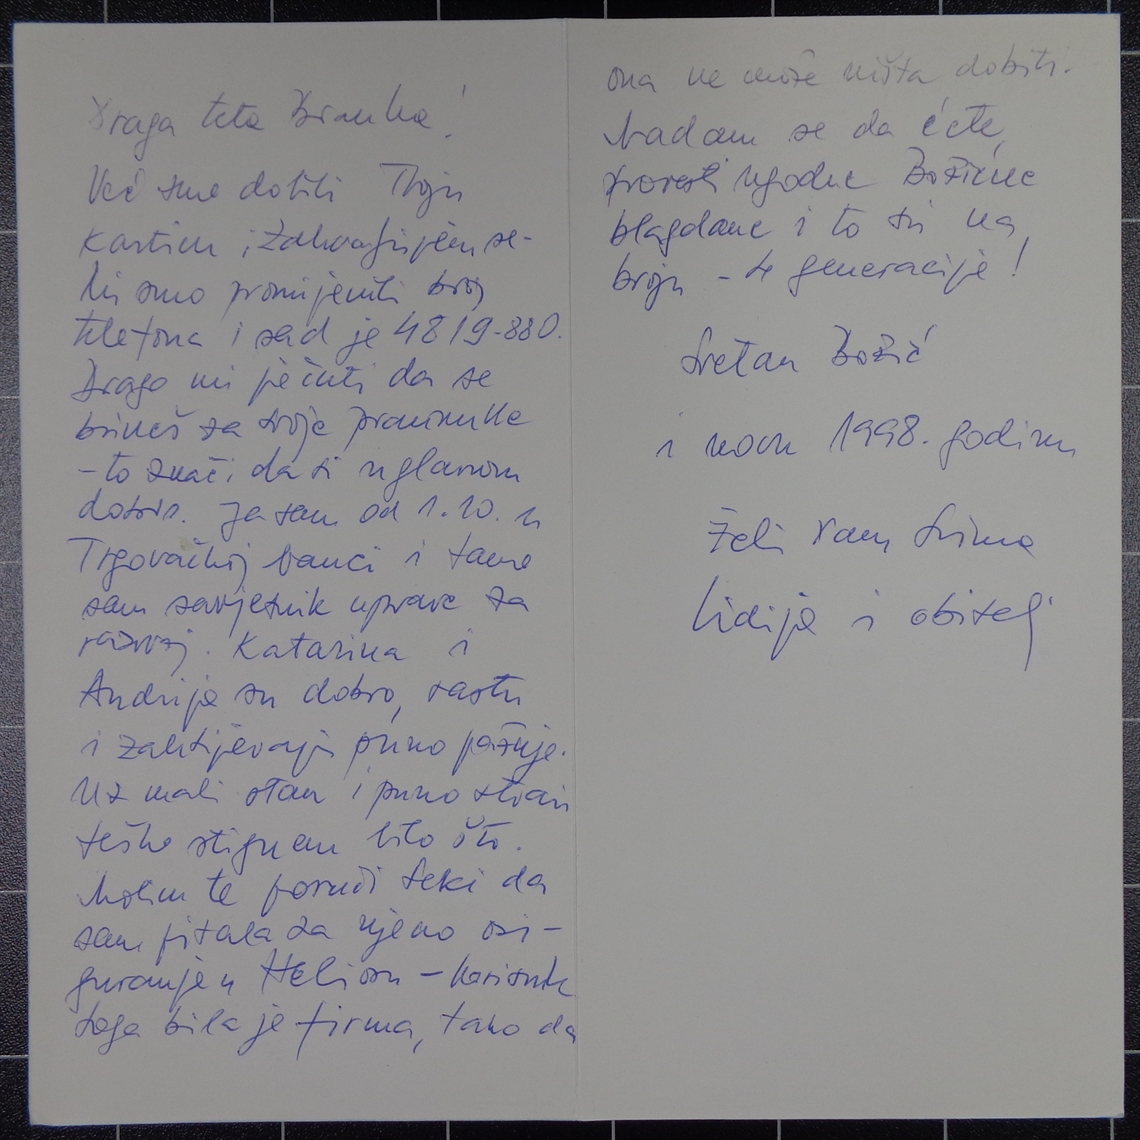 Draga teta Branka!
Već smo dobili Tvoju
karticu i zahvaljujem se -
Mi smo promijenili broj
telefona i sad je 4819-880.
Drago mi je čuti da se
brineš za svoje praunuke
- to znači da si uglavnom
dobro. Ja sam od 1.10. u
Trgovačkoj banci i tamo
sam savjetnik uprave za
razvoj. Katarina i
Andrija su dobro, rastu
i zahtijevaju puno pažnje.
Uz mali stan i puno stvari
teško stignem bilo što.
Molim te poruči Seki da
sam pitala za njeno osi-
guranje u Heliosu - korisnik
toga bila je firma, tako da
ona ne može ništa dobiti.
Nadam se da ćete
provesti ugodne Božićne
blagdane i to svi na
broju - 4 generacije!
Sretan Božić
i novu 1998. godinu
želi Vam Svima
Lidija i obitelj